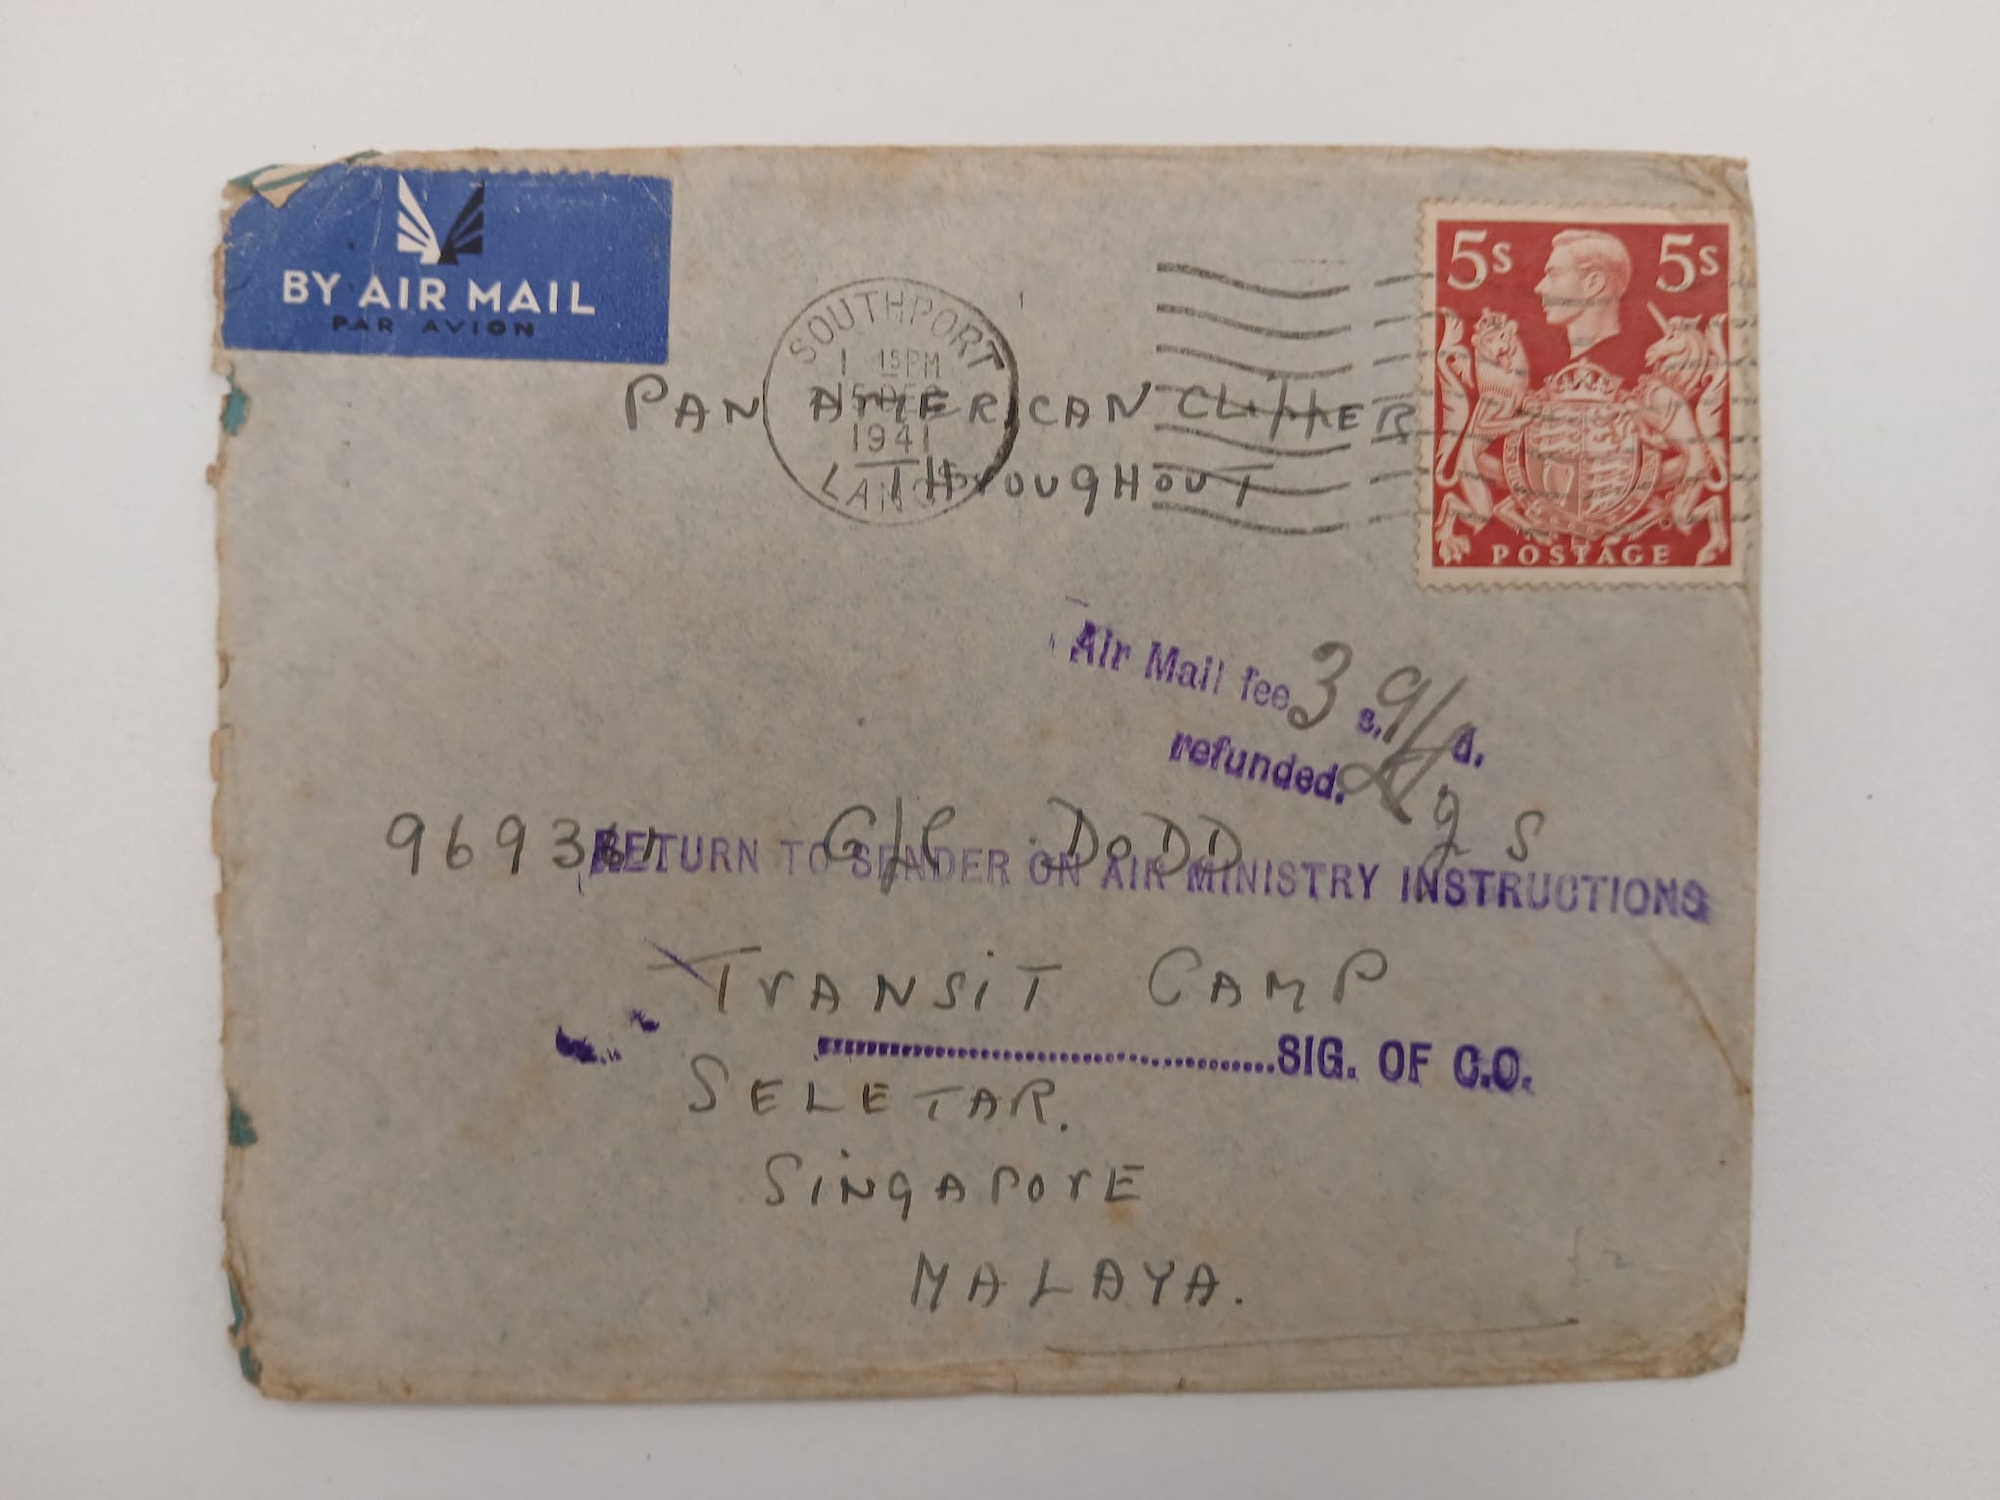 BY AIR MAIL
PAR AVION
5s 5s
POSTAGE
SOUTHPORT
1 15PM
15 DEC
1941
LANCS
PAN AMERICAN CLIPPER
THrOUGHOUT
Air Mail fee 3 s. 9 d.
refunded.
9693 G/C DODD J S
RETURN TO SENDER ON AIR MINISTRY INSTRUCTIONS
TrANSiT CAMP
SIG. OF C.O.
SELETAR.
SiNGAPOrE
MALAYA.